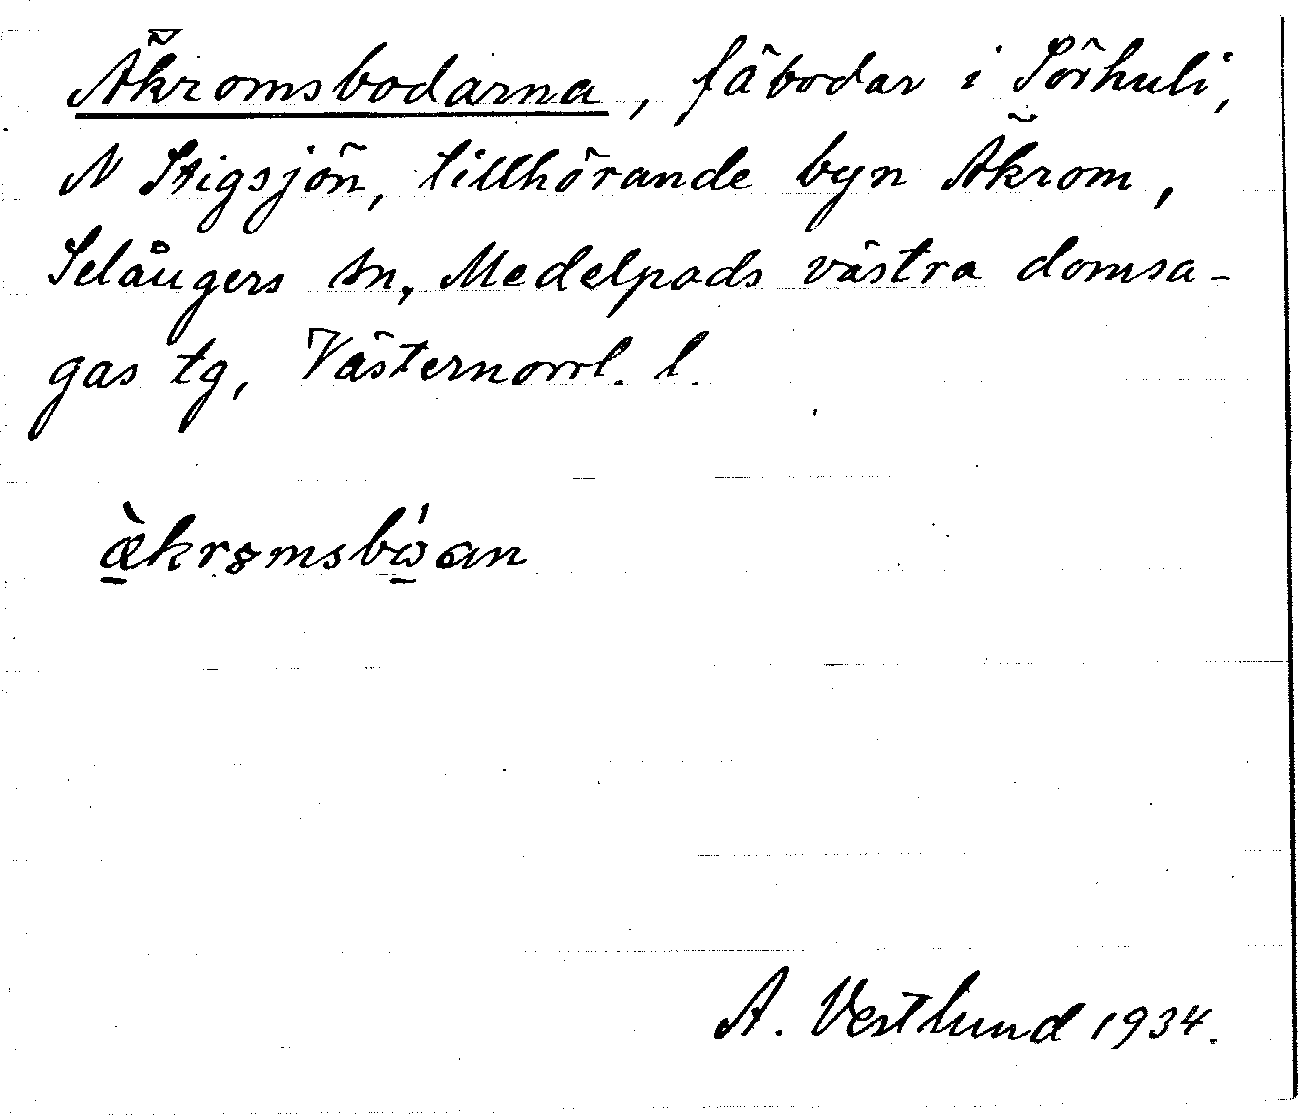 Äkromsbodarna, fäbodar i Sörhuli,
N Stigsjön, tillhörande byn Äkrom,
Selångers sn, Medelpads västra domsa-
gas tg, Västernorrl. l.
æ̀krømsbω̍an
A. Vestlund 1934.